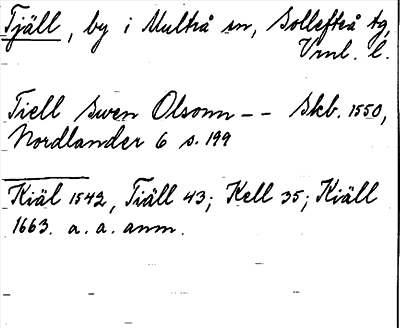 Tjäll, by i Multrå sn, Sollefteå tg,
Vnl. l.
Tiell Swen Olsonn -- Skb. 1550,
Nordlander 6 s. 199
Kiäl 1542, Tiäll 43; Kell 35; Kiäll
1663. a. a. anm.